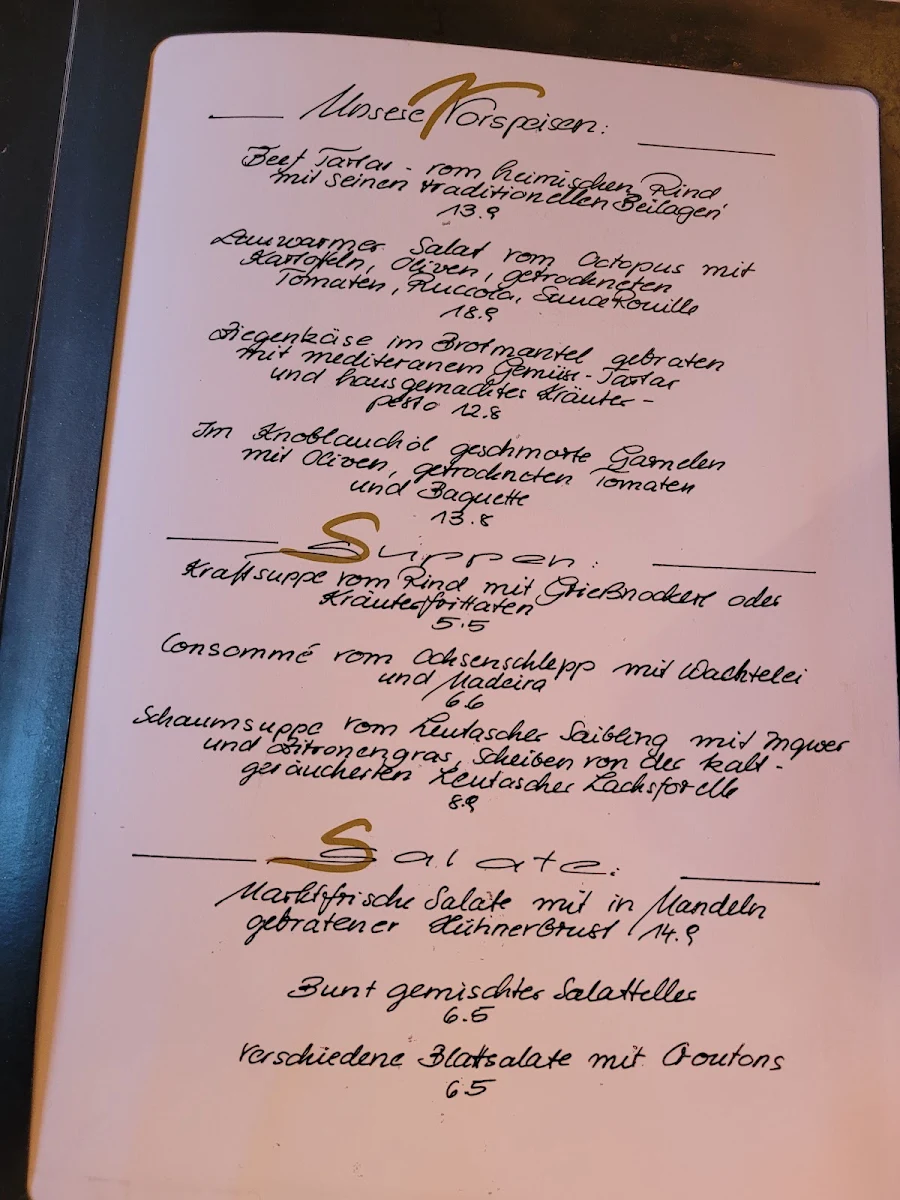 Unsere Vorspeisen:
Beef Tartar - vom heimischen Rind
mit seinen traditionellen Beilagen
13.9
Lauwarmer Salat vom Octopus mit
Kartoffeln, Oliven, getrockneten
Tomaten, Ruccola, Sauce Rouille
18.9
Ziegenkäse im Brotmantel gebraten
mit mediteranem Gemüse-Tartar
und hausgemachtes Kräuter-
pesto 12.8
Im Knoblauchöl geschmorte Garnelen
mit Oliven, getrockneten Tomaten
und Baguette
13.8
Suppen:
Kraftsuppe vom Rind mit Grießnockerl oder
Kräuterfrittaten
5.5
Consommé vom Ochsenschlepp mit Wachtelei
und Madeira
6.6
Schaumsuppe vom Leutascher Saibling mit Ingwer
und Zitronengras, Scheiben von der kalt-
geräucherten Leutascher Lachsforelle
8.9
Salate:
Marktfrische Salate mit in Mandeln
gebratener Hühnerbrust 14.9
Bunt gemischter Salatteller
6.5
Verschiedene Blattsalate mit Croutons
6.5